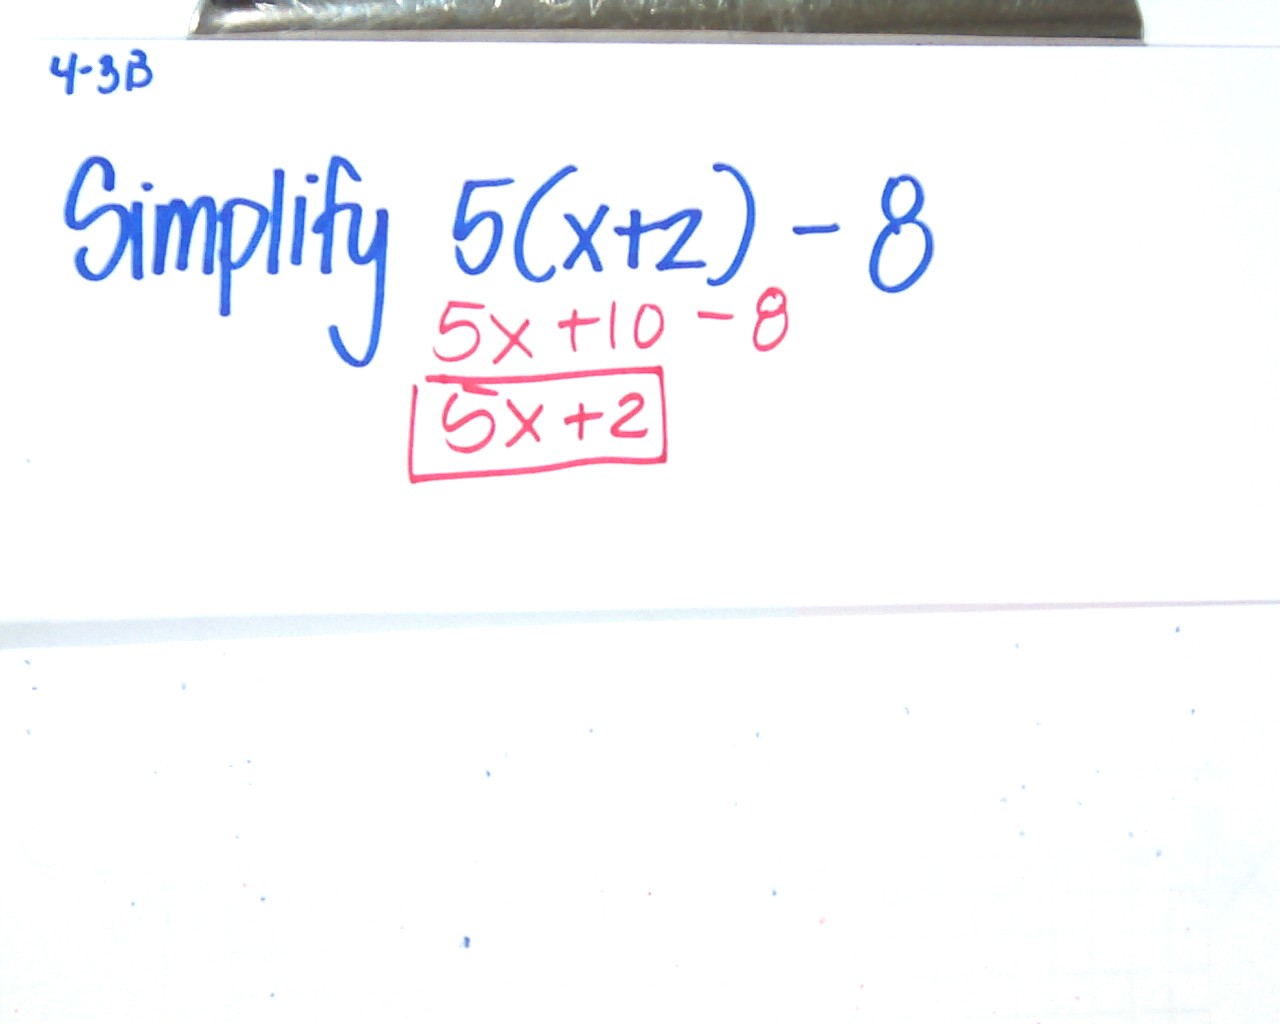 4-3B
Simplify 5(x+2) - 8
5x +10 - 8
5x +2